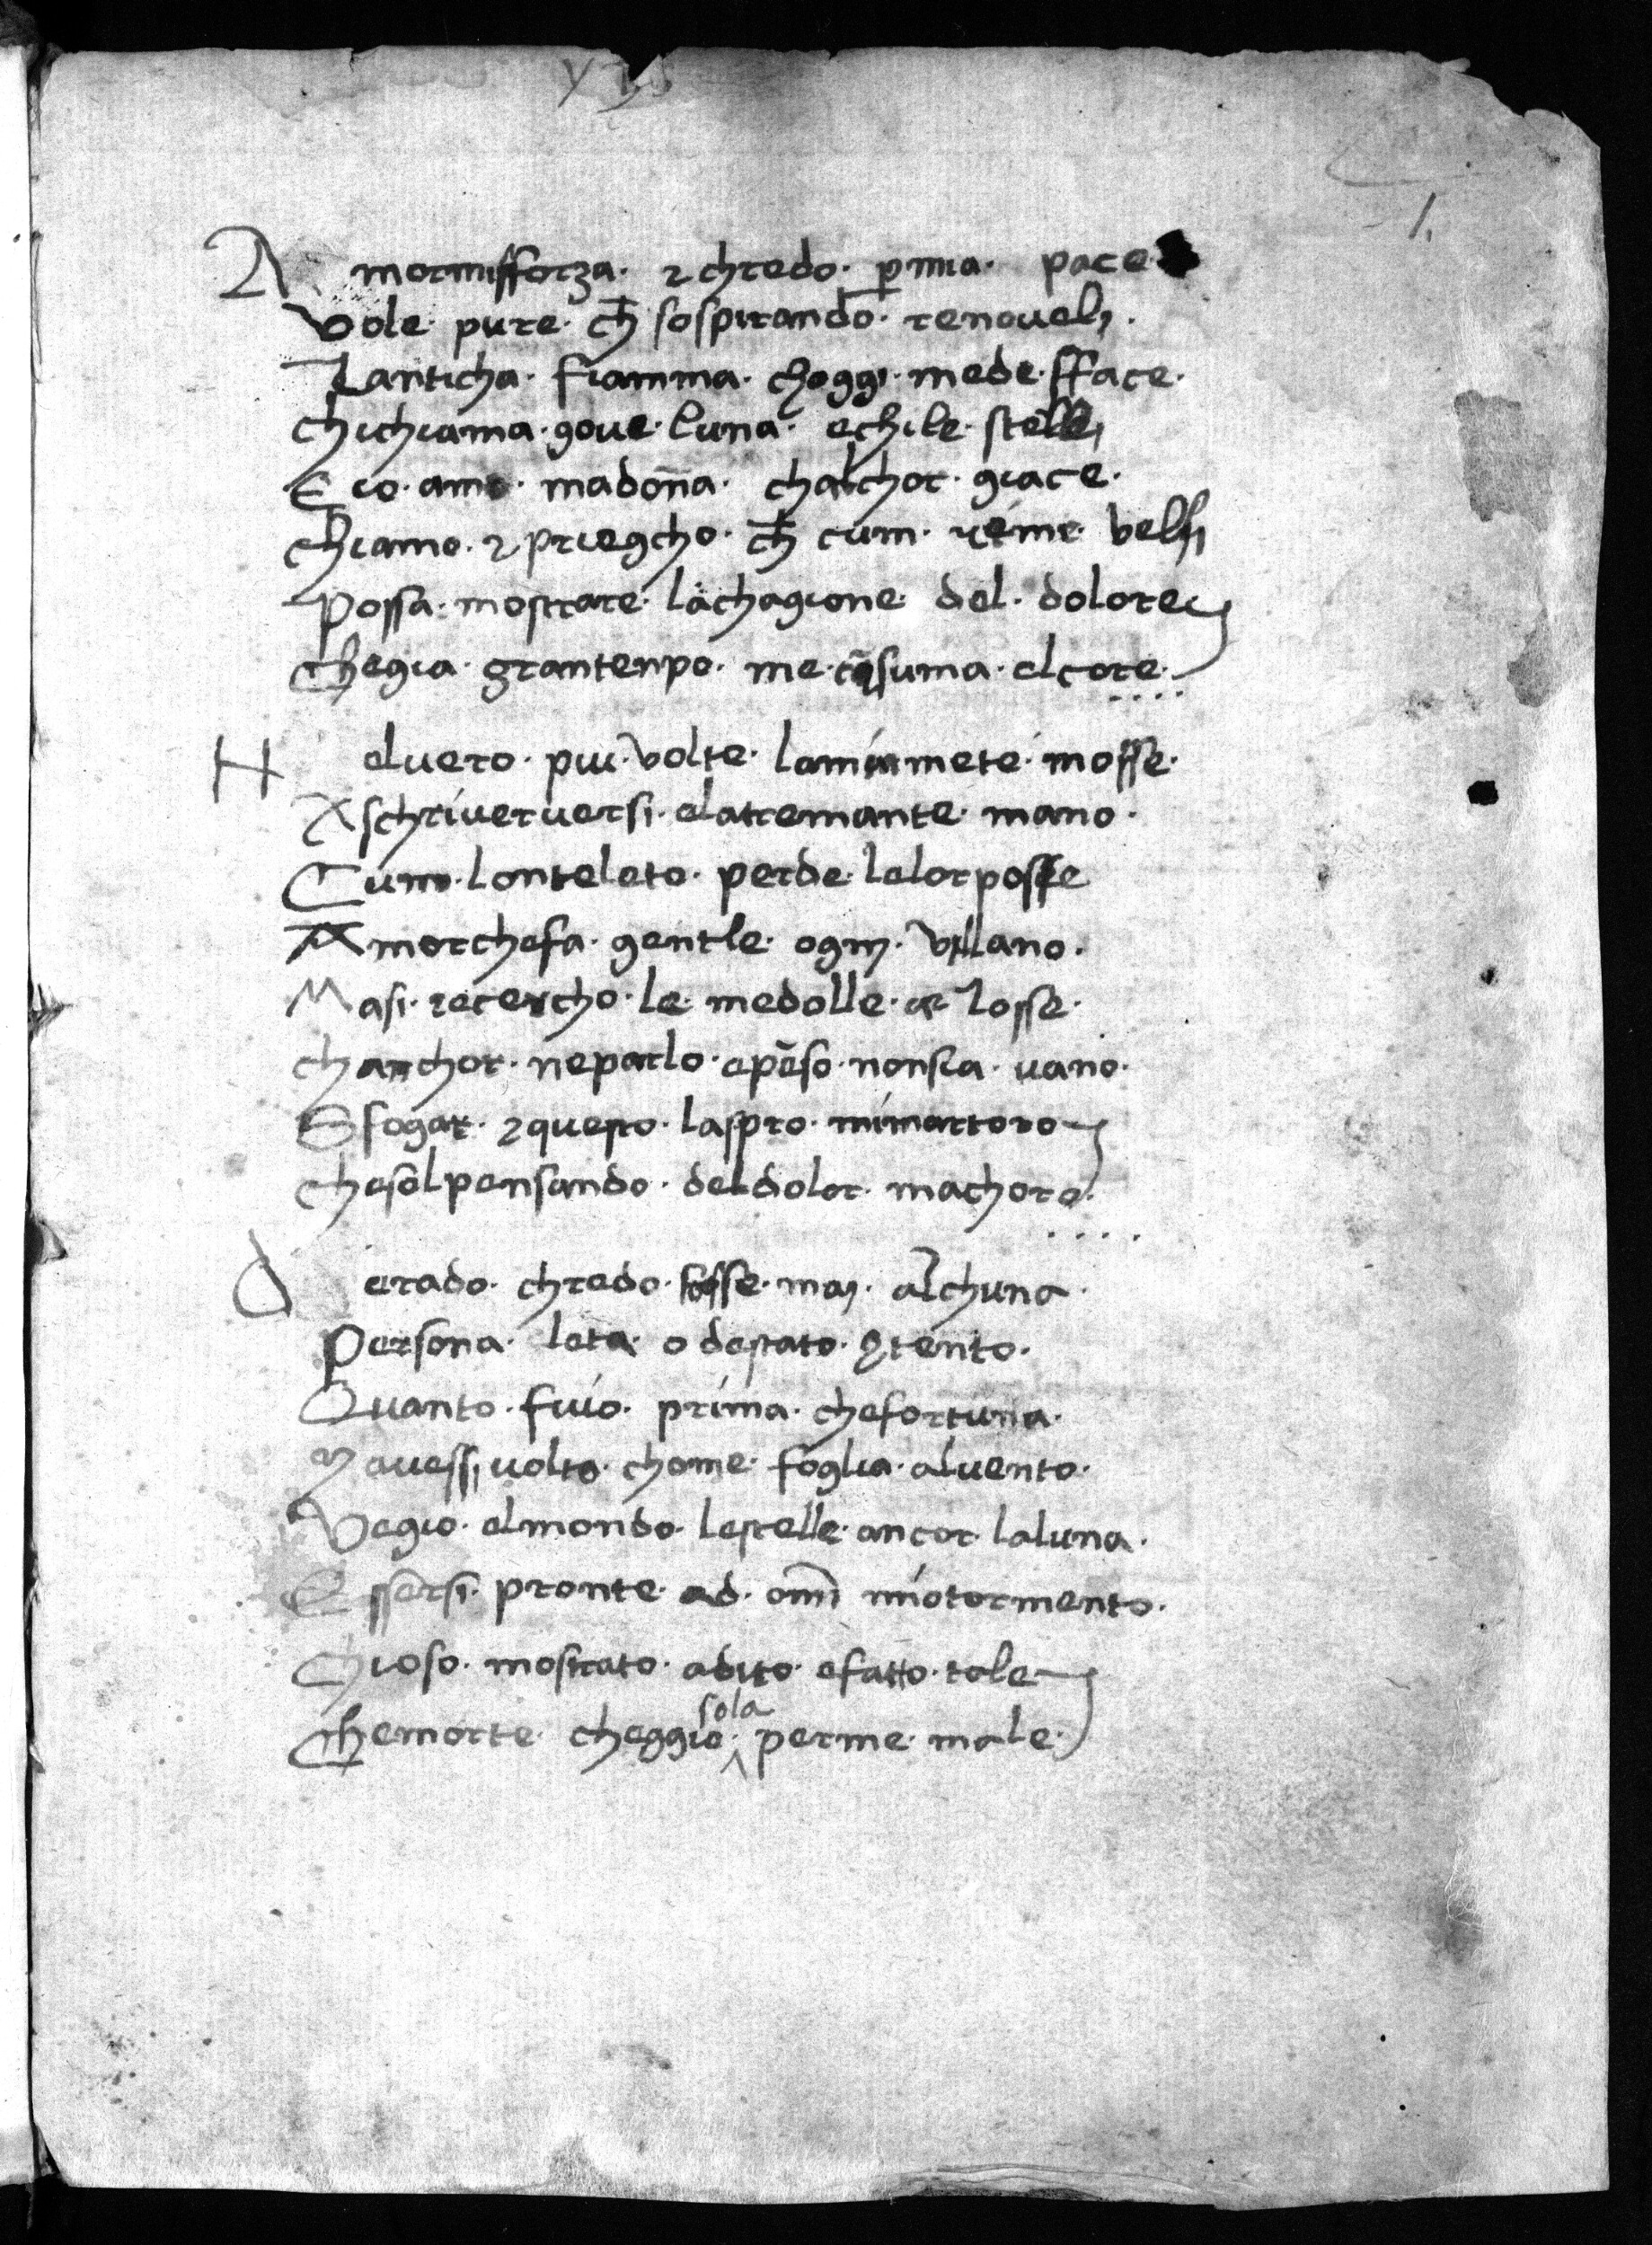 1.
Amormisforza· ⁊ chredo· ꝑ mia· pace
Vole· pure· ch̄ sospirando· renouelj·
Lanticha· fiamma· choggi· mede· sface·
chi chiama· gioue· luna· echi le· stelle
E io· amo· madon̄a· chalchor· giace·
chiamo· ⁊ priegcho· ch̄ cum· rime· belli
Possa· mostrare· lachagione· del· dolore
chegia· grantenpo· me· cōsuma· elcore·
Heluero· piu· volte· lamiamēte· mosse·
A schriueruersi· elatremante· mano·
Cum· lonteleto· perde· lelorposse
Amorchefa· gentile· ognj· villano·
Masi· recercho· le· medolle· et losse·
chanchor· neparlo· epēso· nonsia· uano·
Esfogar· ⁊ questo· laspro· mimartoro
chesolpensando· deldolor· machoro·
derado· chredo· fosse· maj· alchuna·
Persona· leta· o destato· ꝯtento·
Quanto· fuio· prima· chefortuna·
Mauessi uolto· chome· foglia· aluento·
Vegio· elmondo· lestelle· ancor· laluna·
Essersi· pronte· ad· om̄i miotormento·
Chioso· mostrato· adito· efatto· tale
chemorte· cheggio· sola perme· male·